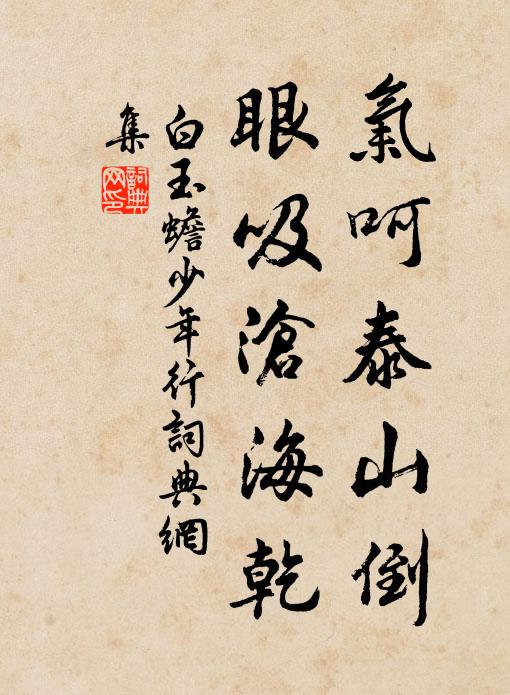 氣呵泰山倒
眼吸滄海乾
白玉蟾少年行詞典網
集
詞典网印